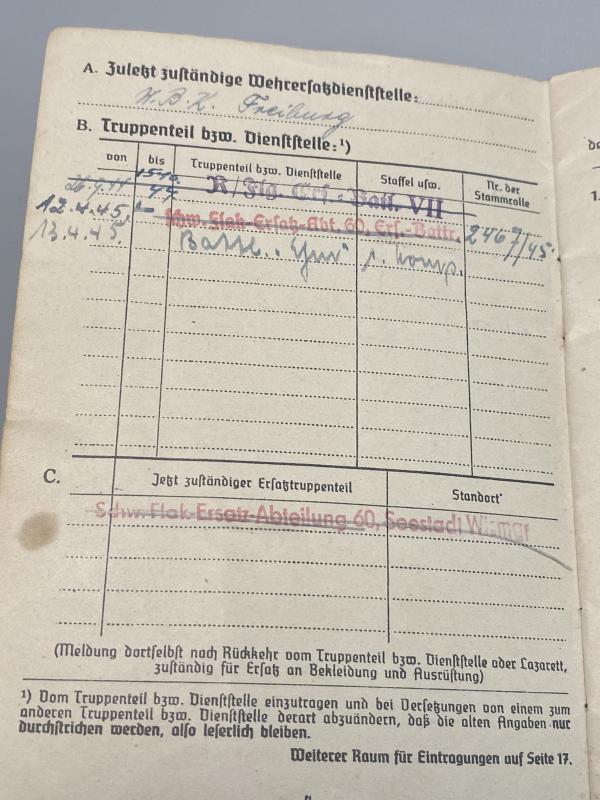 A. Zuletzt zuständige Wehrersatzdienststelle:
W.B.K. Freiburg
B. Truppenteil bzw. Dienststelle:¹)
von bis Truppenteil bzw. Dienststelle Staffel usw. Nr. der Stammrolle
Ers.-Batl. VII
12.4.45. schw. Flak-Ersatz-Abt. 60, Ers.-Battr. 2467/45.
13.4.45.
C. Jetzt zuständiger Ersatztruppenteil Standort
Schw. Flak-Ersatz-Abteilung 60, Seestadt Wismar
(Meldung dortselbst nach Rückkehr vom Truppenteil bzw. Dienststelle oder Lazarett,
zuständig für Ersatz an Bekleidung und Ausrüstung)
¹) Vom Truppenteil bzw. Dienststelle einzutragen und bei Versetzungen von einem zum
anderen Truppenteil bzw. Dienststelle derart abzuändern, daß die alten Angaben nur
durchstrichen werden, also leserlich bleiben.
Weiterer Raum für Eintragungen auf Seite 17.
1.